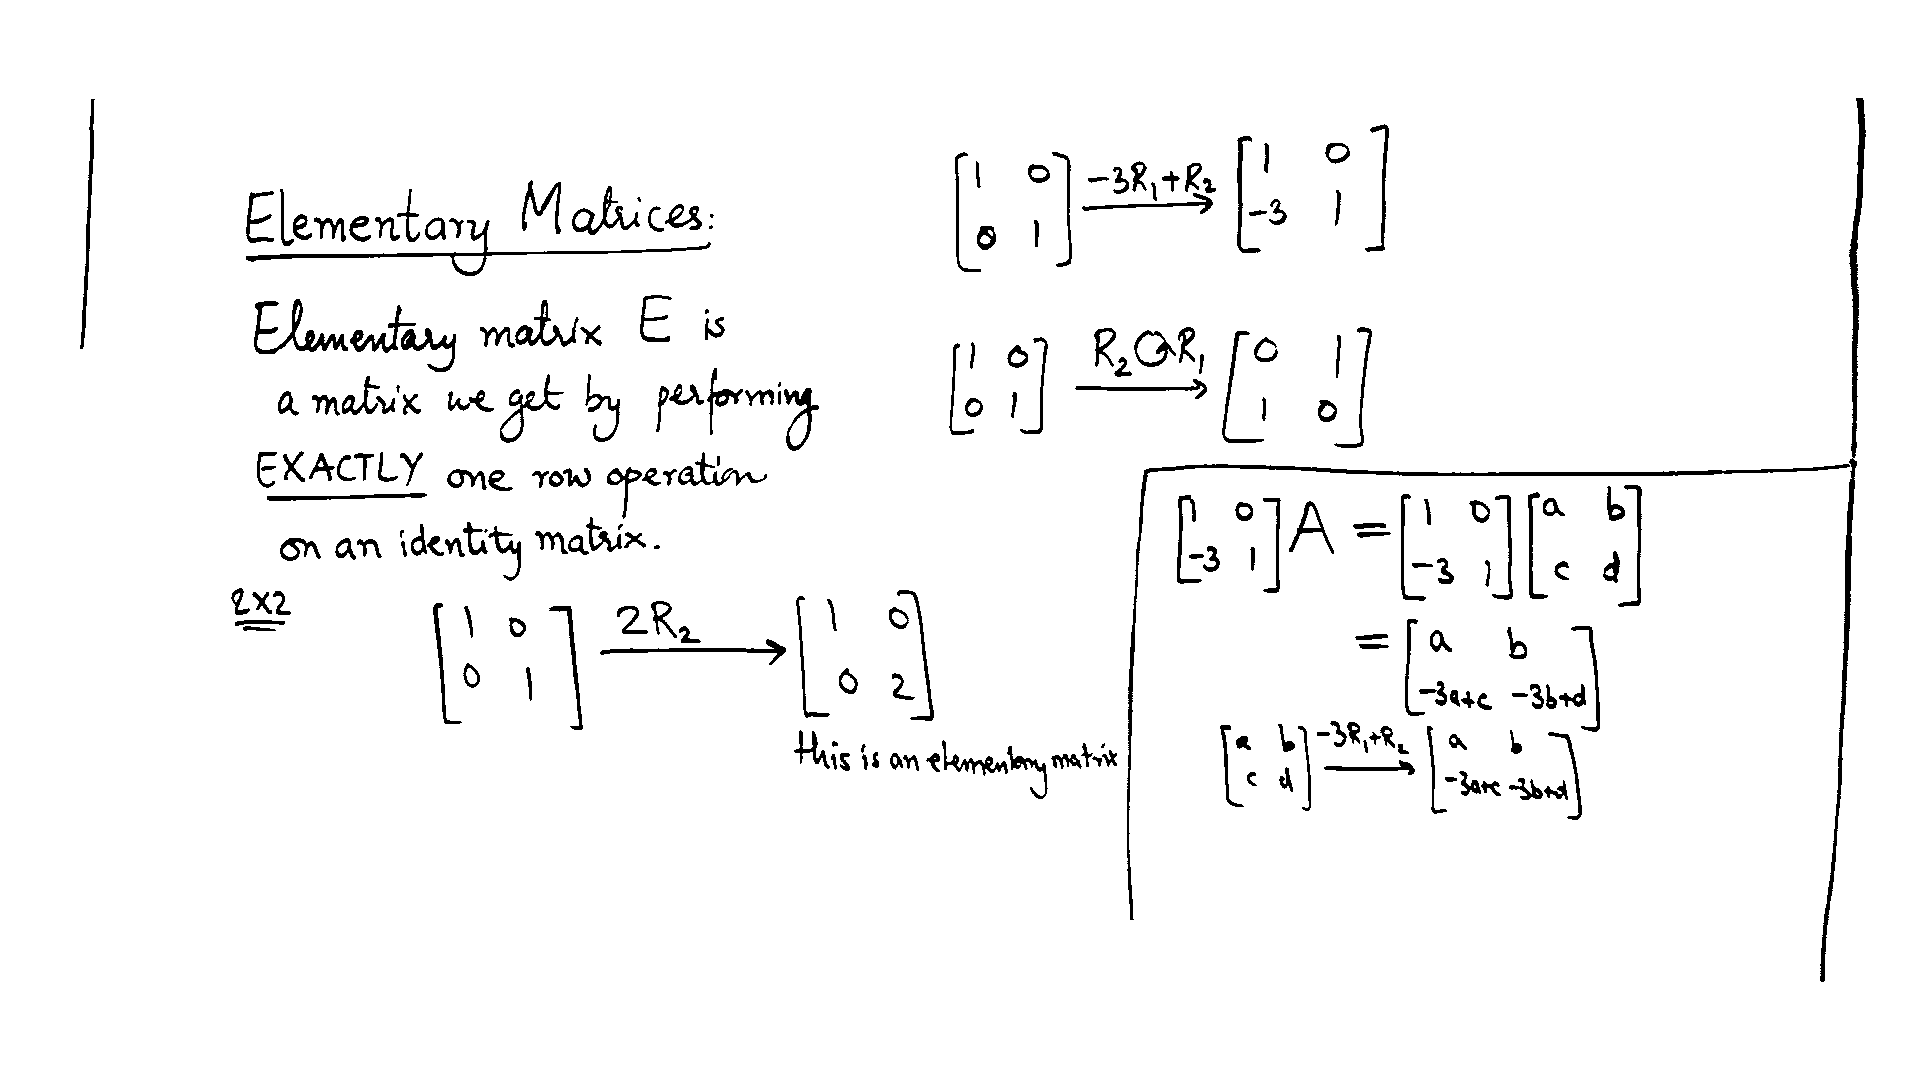 Elementary Matrices:
Elementary matrix E is
a matrix we get by performing
EXACTLY one row operation
on an identity matrix.
2x2
[1 0; 0 1] 2R₂ → [1 0; 0 2]
this is an elementary matrix
[1 0; 0 1] -3R₁+R₂ → [1 0; -3 1]
[1 0; 0 1] R₂ ↻ R₁ → [0 1; 1 0]
[1 0; -3 1] A = [1 0; -3 1] [a b; c d]
= [a b; -3a+c -3b+d]
[a b; c d] -3R₁+R₂ → [a b; -3a+c -3b+d]